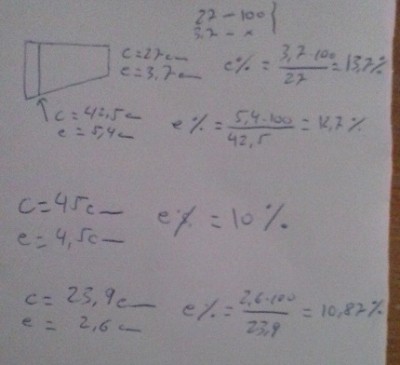 27 – 100
3.7 – x
c = 27cm
e = 3,7cm
e% = 3,7·100 / 27 = 13,7%
c = 42,5cm
e = 5,4cm
e% = 5,4·100 / 42,5 = 12,7%
c = 45cm
e = 4,5cm
e% = 10%
c = 23,9cm
e = 2,6cm
e% = 2,6·100 / 23,9 = 10,87%